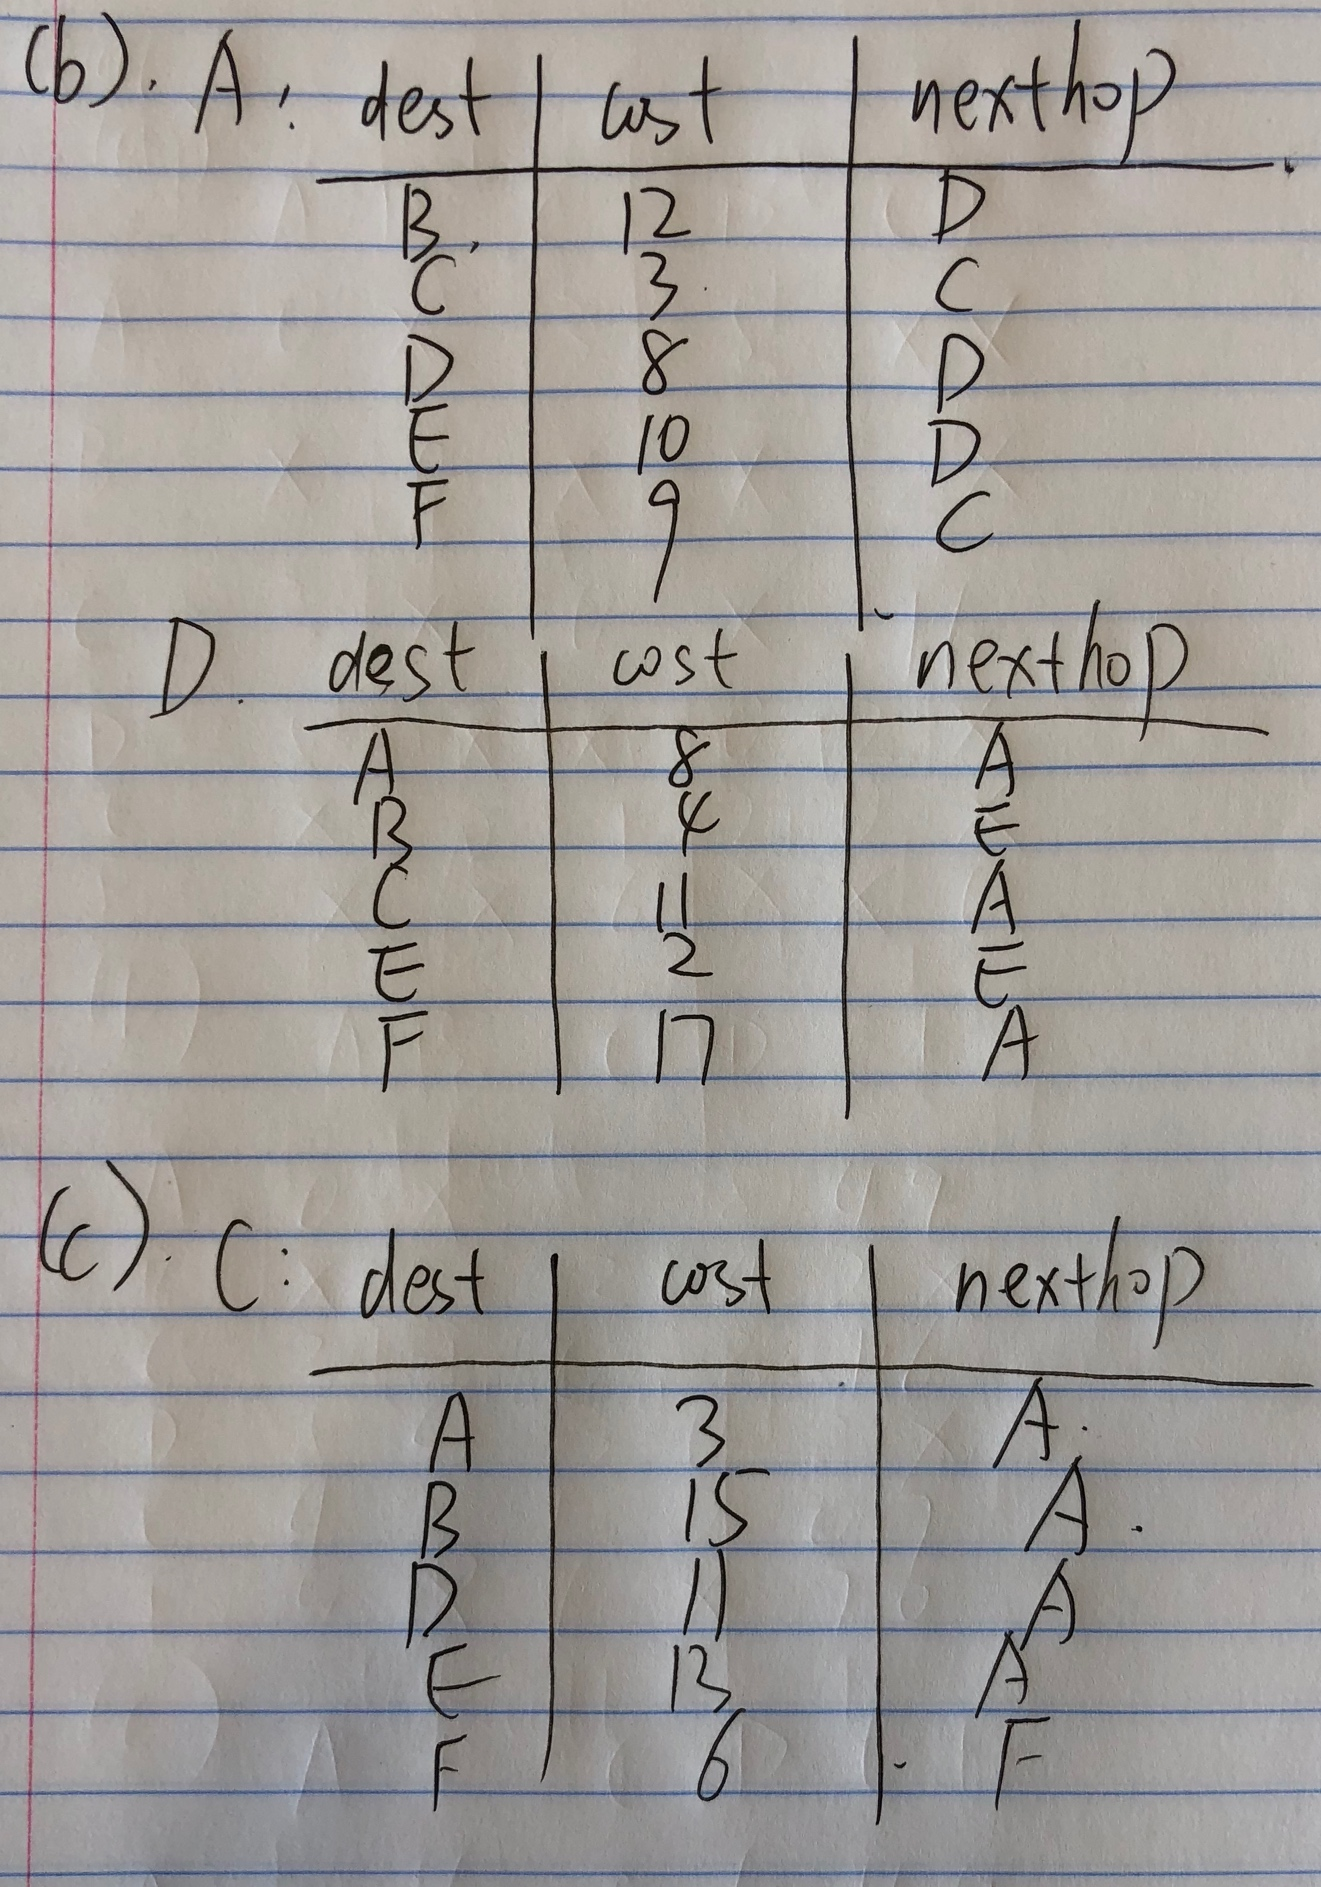 (b). A: dest cost nexthop
B. 12 D
C 3 C
D 8 D
E 10 D
F 9 C
D. dest cost nexthop
A 8 A
B 4 E
C 11 A
E 2 E
F 17 A
(c). C: dest cost nexthop
A 3 A.
B 15 A.
D 11 A
E 13 A
F 6 F